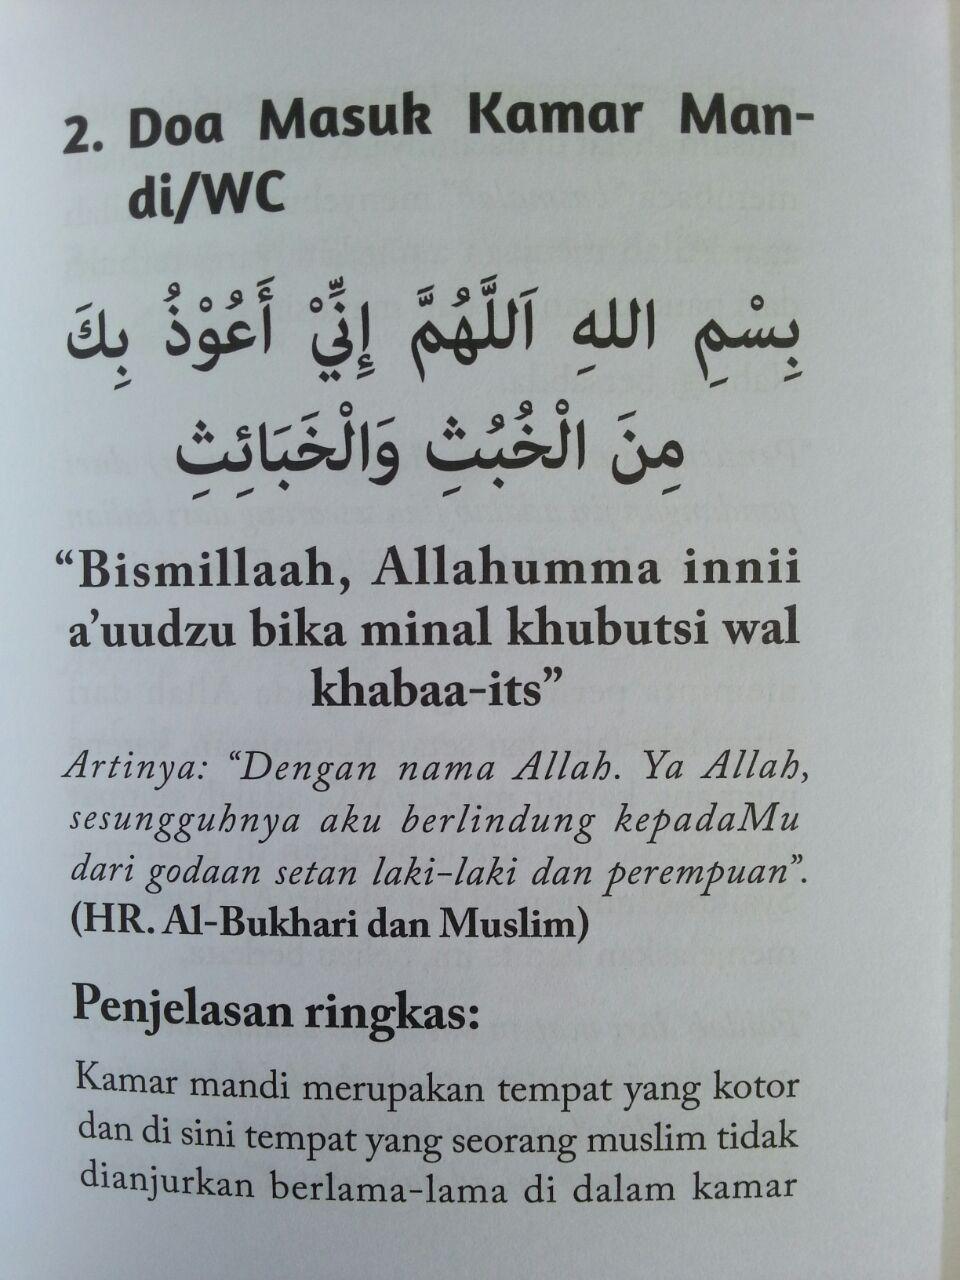 2. Doa Masuk Kamar Man-
di/WC
بِسْمِ اللهِ اَللَّهُمَّ إِنِّيْ أَعُوْذُ بِكَ
مِنَ الْخُبُثِ وَالْخَبَائِثِ
“Bismillaah, Allahumma innii
a’uudzu bika minal khubutsi wal
khabaa-its”
Artinya: “Dengan nama Allah. Ya Allah,
sesungguhnya aku berlindung kepadaMu
dari godaan setan laki-laki dan perempuan”.
(HR. Al-Bukhari dan Muslim)
Penjelasan ringkas:
Kamar mandi merupakan tempat yang kotor
dan di sini tempat yang seorang muslim tidak
dianjurkan berlama-lama di dalam kamar